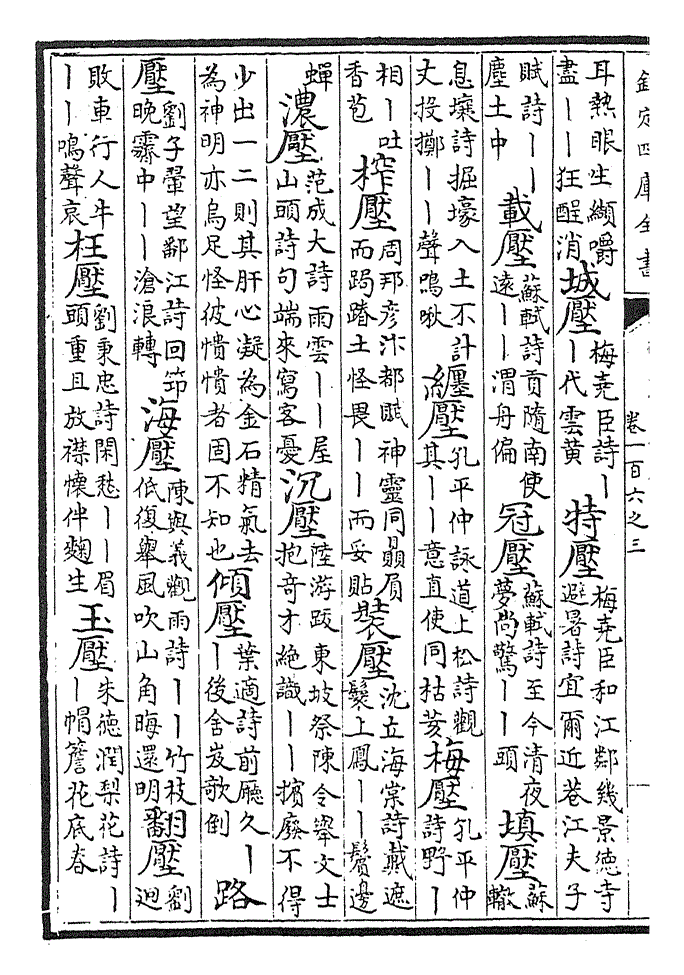 欽定四庫全書
卷一百六之三
耳熱眼生纈嚼盡丨丨狂酲消 城壓 梅堯臣詩丨丨代雲黄 特壓 梅堯臣和江鄰幾景徳寺避暑詩宜爾近巷江夫子
賦詩丨丨塵土中 載壓 蘇軾詩貢隨南使遠丨丨渭舟偏 冠壓 蘇軾詩至今清夜夢尚驚丨丨頭 填壓 蘇轍
息壤詩掘壕入土不計丈投擲丨丨聲鳴啾 纏壓 孔平仲詠道上松詩觀其丨丨意直使同枯荄 梅壓 孔平仲詩野丨
相丨吐香苞 搾壓 周邦彦汴都賦神靈同贔屓而跼蹐土怪畏丨丨而妥貼 裝壓 沈立海棠詩戴遮鬟上鳳丨丨鬢邊
蟬 濃壓 范成大詩雨雲丨丨屋山頭詩句端來寫客憂 沉壓 陸游跋東坡祭陳令舉文士抱奇才絶識丨丨擯廢不得
少出一二則其肝心凝為金石精氣去為神明亦烏足怪彼憒憒者固不知也 傾壓 葉適詩前廳久丨丨後舍岌欹倒 路
壓 劉子翬望鄱江詩回節晚霽中丨丨滄浪轉 海壓 陳與義觀雨詩丨丨竹枝低復舉風吹山角晦還明 翻壓 劉迎
敗車行人牛丨丨鳴聲哀 枉壓 劉秉忠詩閑愁丨丨眉頭重且放襟懷伴麴生 玉壓 朱徳潤梨花詩丨丨帽簷花底春